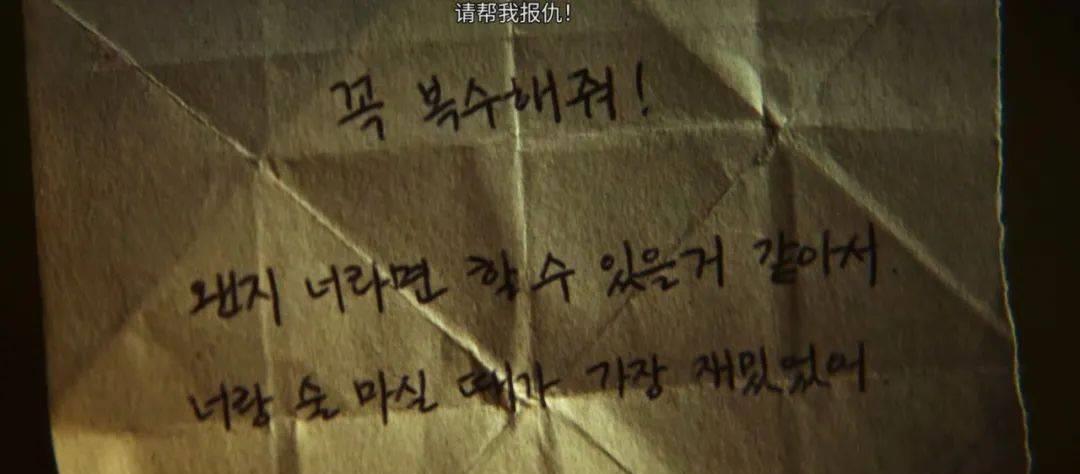 请帮我报仇!
꼭 복수해줘!
왠지 너라면 할 수 있을거 같아서.
너랑 술 마실 때가 가장 재밌었어.